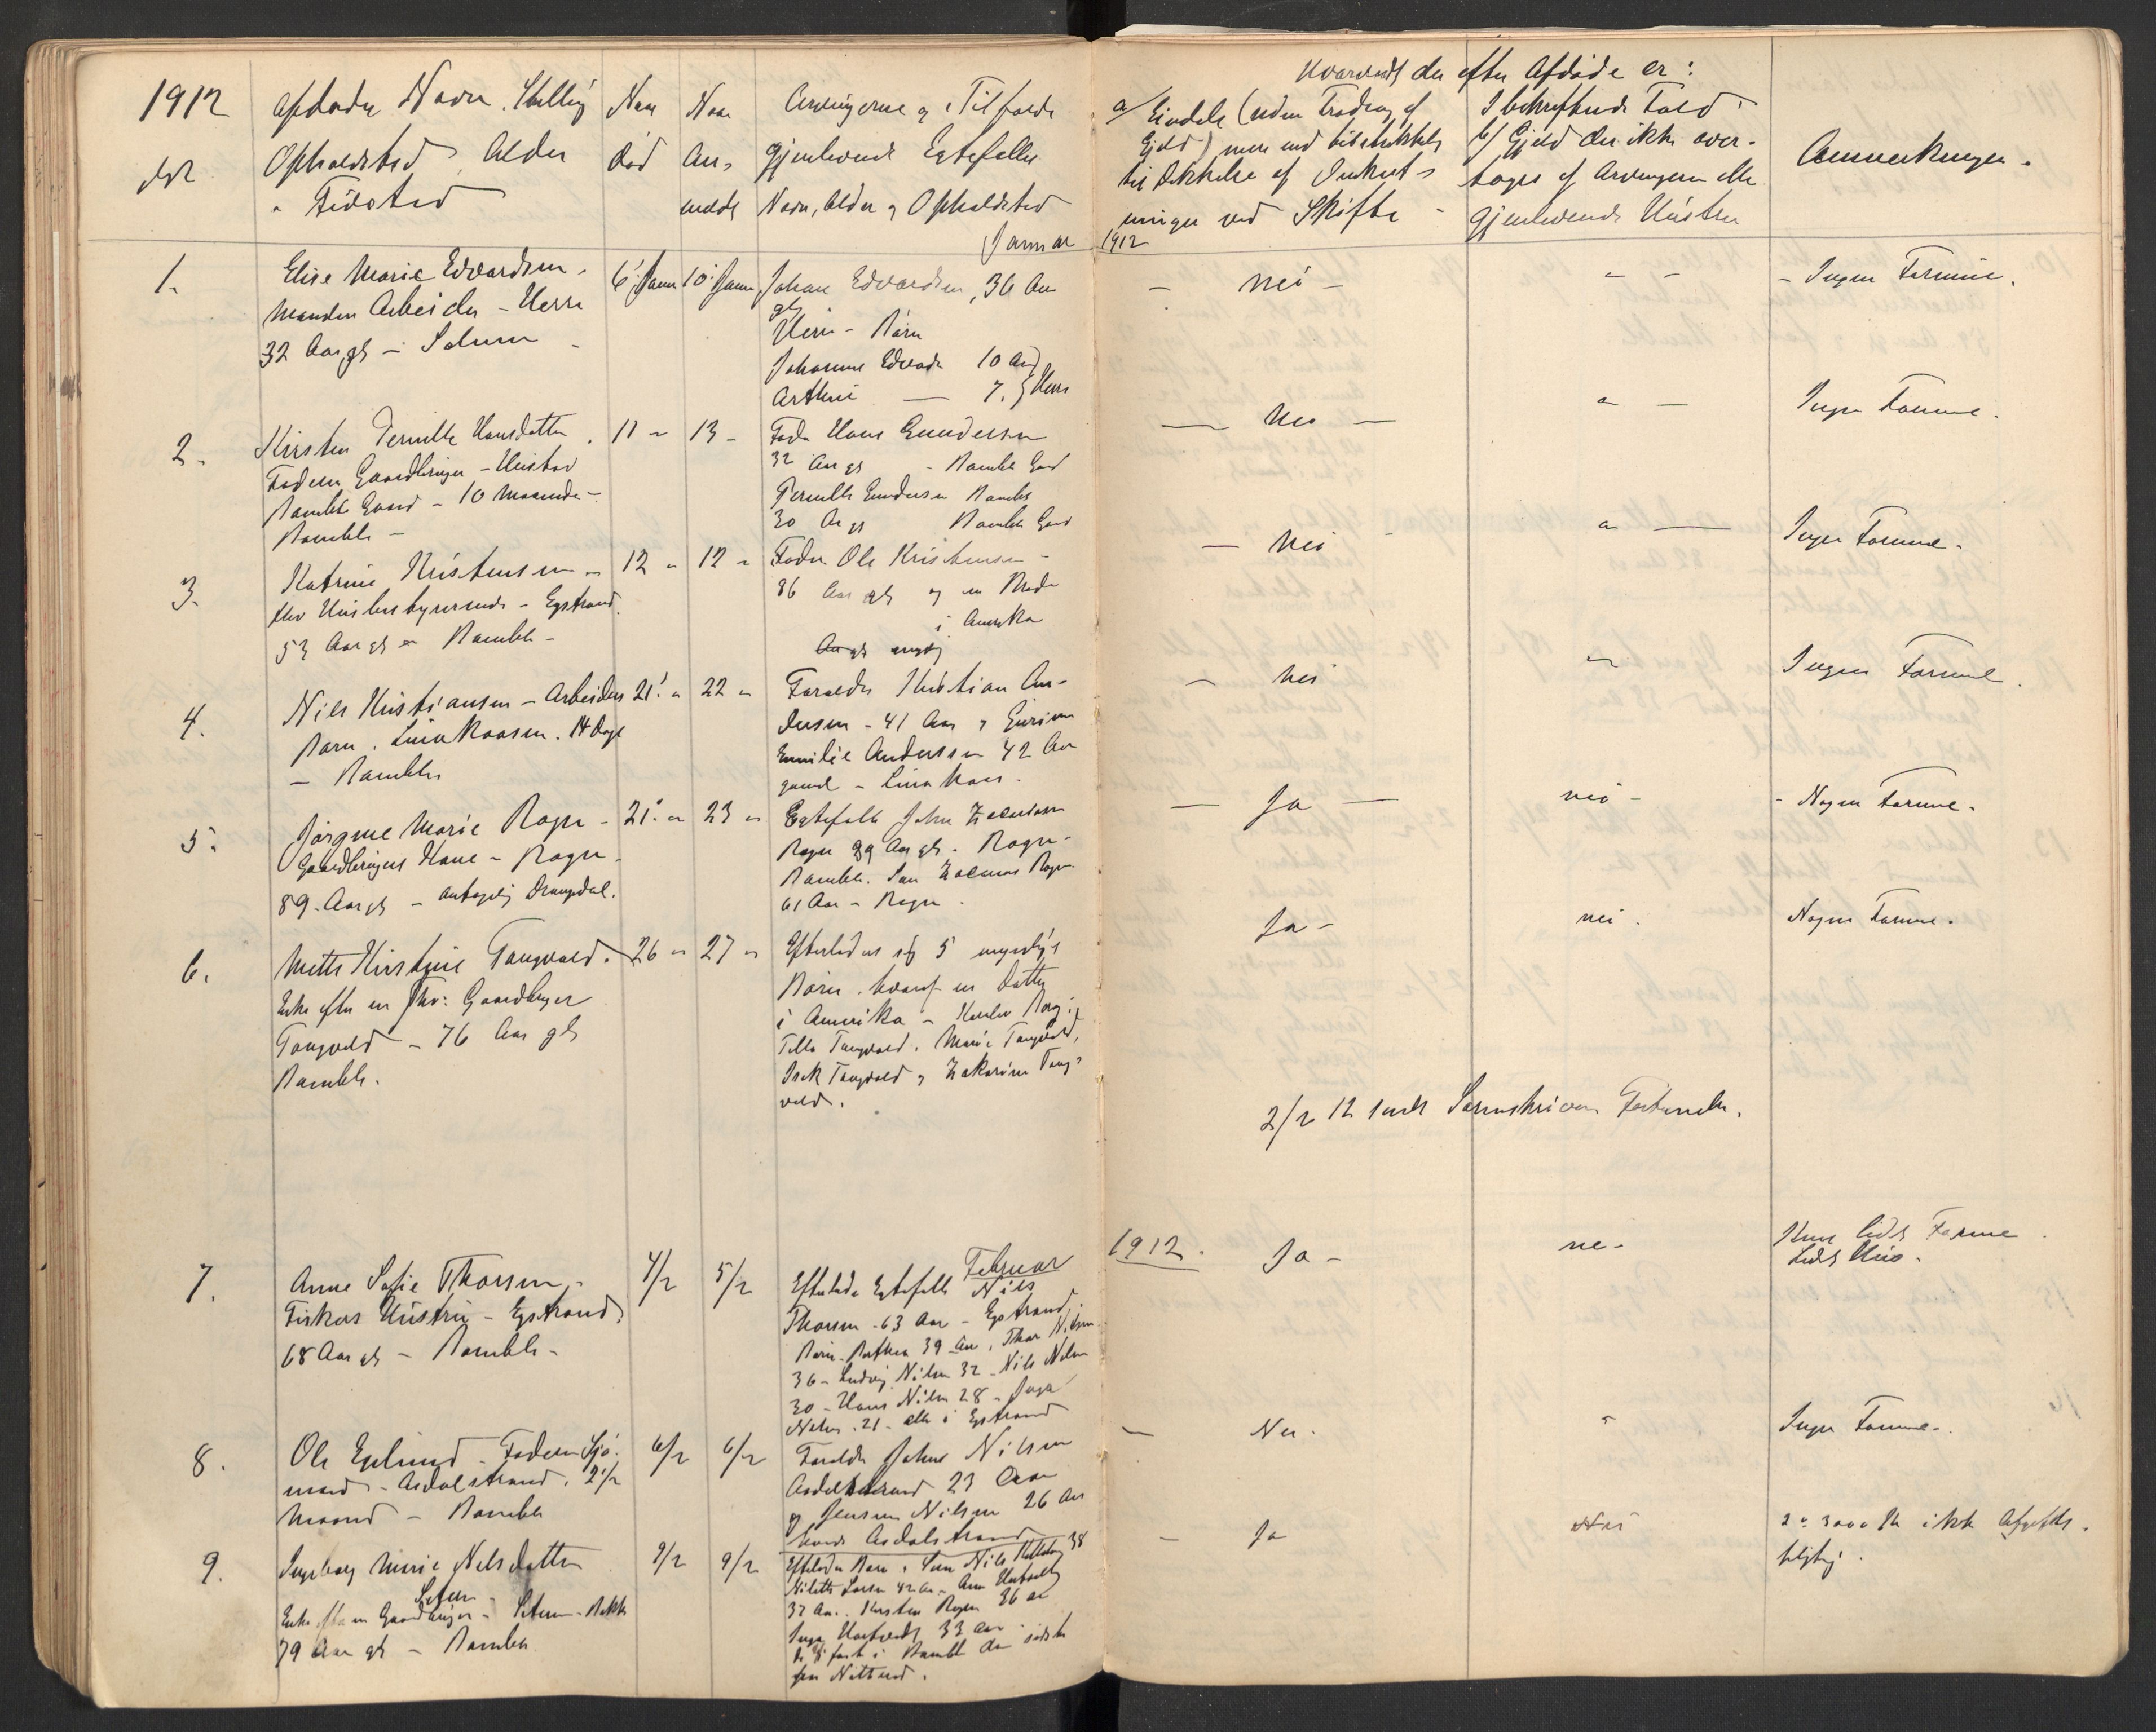 1912
Afdødes Navn, Stilling
Opholdsted, Alder
Fødsted
Naar
død
Naar
An-
meldt
Arvingerne og i Tilfælde
gjenlevende Egtefælles
Navn, Alder og Opholdsted
Hvorvidt der efter Afdøde er:
a/ Eiendele (uden Fradrag af
Gjeld) mere end tilstrækkelig
til Dækkelse af Omkost-
ninger ved Skifte
I bekræftende Fald
b/ Gjeld der ikke over-
tages af Arvingerne eller
gjenlevende Hustru
Anmerkninger.
Januar 1912
1.
Elise Marie Edvardsen.
Manden Arbeider - Herre
32 Aar gl - Solum -
6' Janu
10' Janu
Johan Edvardsen, 36 Aar
gl
Herre - Børn
Johannes Edvards 10 Aar
Arthur — 7. } Herre
- nei -
" -
- Ingen Formue.
2.
Kirsten Pernille Hansdatter.
Faderen Gaardbruger - Ugistad
Bamble Gaard - 10 Maaneder -
Bamble -
11 "
13 -
Fader Hans Gundersen
32 Aar gl - Bamble Gaard
Pernille Gundersen Bamble
30 Aar gl Bamble Gaard
— Nei —
" —
Ingen Formue.
3.
Katrine Kristensen -
fhv Huusbestyrerinde - Egstrand.
53 Aar gl - Bamble -
12 "
12 "
Fader Ole Kristensen -
86 Aar gl og en Broder
i Amerika
— Nei
" —
Ingen Formue -
4.
Nils Kristiansen - Arbeiders
Barn. Linakaasen. 14 Dage
- Bamble
21' "
22 "
Foreldre Kristian An-
dersen - 41 Aar og
Emilie Andersen 42 Aar
gamel - Linakaas -
- Nei
"
Ingen Formue.
5.
Jørgine Marie Rogn -
Gaardbrugers Kone - Rogn -
89. Aar gl - antagelig Drangedal.
21' "
23 "
Egtefelle John Zakariasen
Rogn 89 Aar gl. Rogn -
Bamble. Søn Zakarias Rogn
61 Aar - Rogn.
— Ja —
nei -
- Nogen Formue.
6.
Mette Kirstine Tangvald.
Enke efter en fhv: Gaardbruger
Tangvald - 76 Aar gl
Bamble.
26 "
27 "
Efterlader sig 5 myndige
Børn. hvoraf en Datter
i Amerika -
Tilla Tangvald, Marie Tangvald,
Isak Tangvald og Zakarine Tang-
vald.
Ja -
nei.
Nogen Formue.
2/2 12 sendt Sorenskriveren Fortegnelse.
Februar 1912.
7.
Anne Sofie Thorsen,
Fiskers Hustru - Egstrand
68 Aar gl - Bamble -
4/2
5/2
Efterlader Egtefelle Nils
Thorsen - 63 Aar - Egstrand.
Børn - 39 Aar, Thor Nilsen
36 - Ludvig Nilsen 32 - Nils Nilsen
30 - Hans Nilsen 28 -
Nilsen. 21 - alle i Egstrand
Ja -
nei -
Kun lidt Formue
Lidet Hus.
8.
Ole Eglund - Faderen Sjø-
mand - Asdalstrand. 2 1/2
Maaned - Bamble
6/2
6/2
Foreldre Johan Nilsen
Asdalstrand 23 Aar
og Nilsen 26 Aar
Asdalstrand
— Nei.
"
Ingen Formue -
9.
Ingeborg Marie Nilsdatter
Enke efter en Gaardbruger -
79 Aar gl - Bamble
9/2
9/2
Efterlader Børn: Søn Nils 38
Larsen 42 Aar -
37 Aar. Kirsten Rogn 36 Aar
Inga 33 Aar
i Bamble den sidste
- Ja
Nei
2 a 3000 Kr ikke Afgifts-
pligtig.